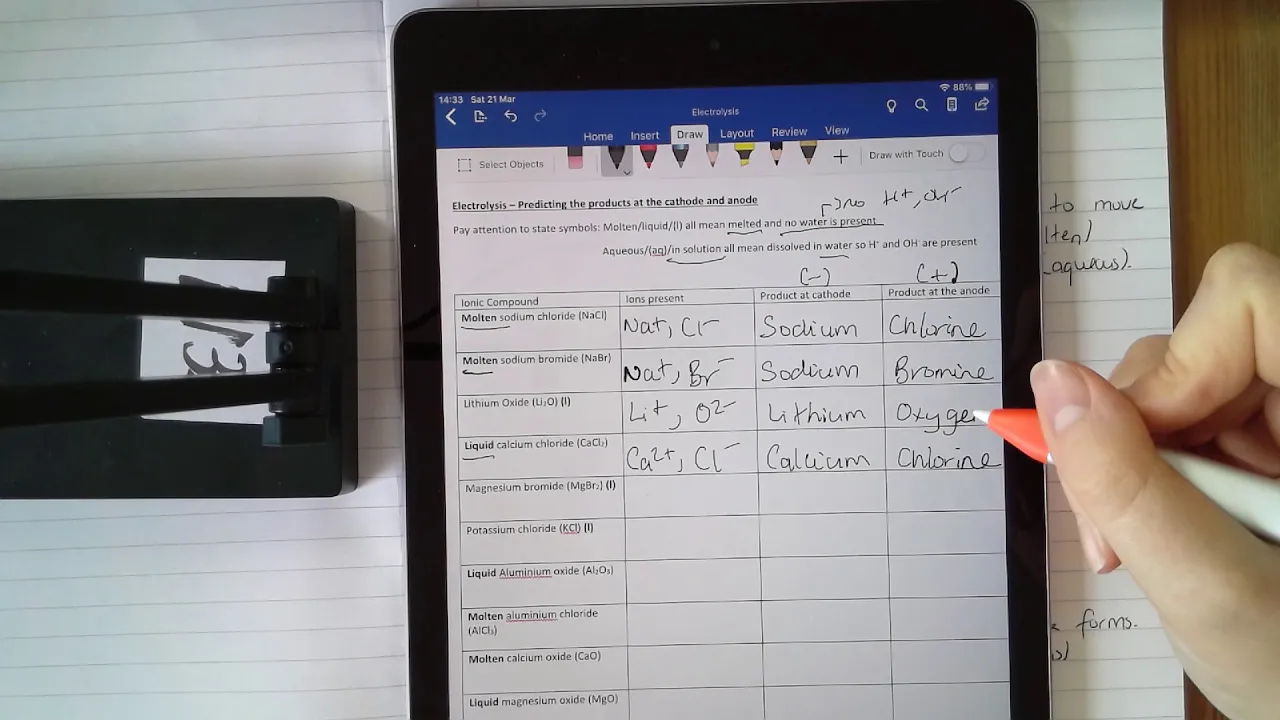 14:33 Sat 21 Mar
88%
Electrolysis
Home Insert Draw Layout Review View
Select Objects
Draw with Touch
Electrolysis – Predicting the products at the cathode and anode
no H+, OH-
Pay attention to state symbols: Molten/liquid/(l) all mean melted and no water is present
Aqueous/(aq)/in solution all mean dissolved in water so H⁺ and OH⁻ are present
(-) (+)
Ionic Compound Ions present Product at cathode Product at the anode
Molten sodium chloride (NaCl) Na+, Cl- Sodium Chlorine
Molten sodium bromide (NaBr) Na+, Br- Sodium Bromine
Lithium Oxide (Li₂O) (l) Li+, O2- Lithium Oxygen
Liquid calcium chloride (CaCl₂) Ca2+, Cl- Calcium Chlorine
Magnesium bromide (MgBr₂) (l)
Potassium chloride (KCl) (l)
Liquid Aluminium oxide (Al₂O₃)
Molten aluminium chloride
(AlCl₃)
Molten calcium oxide (CaO)
Liquid magnesium oxide (MgO)
to move
(aqueous).
forms.